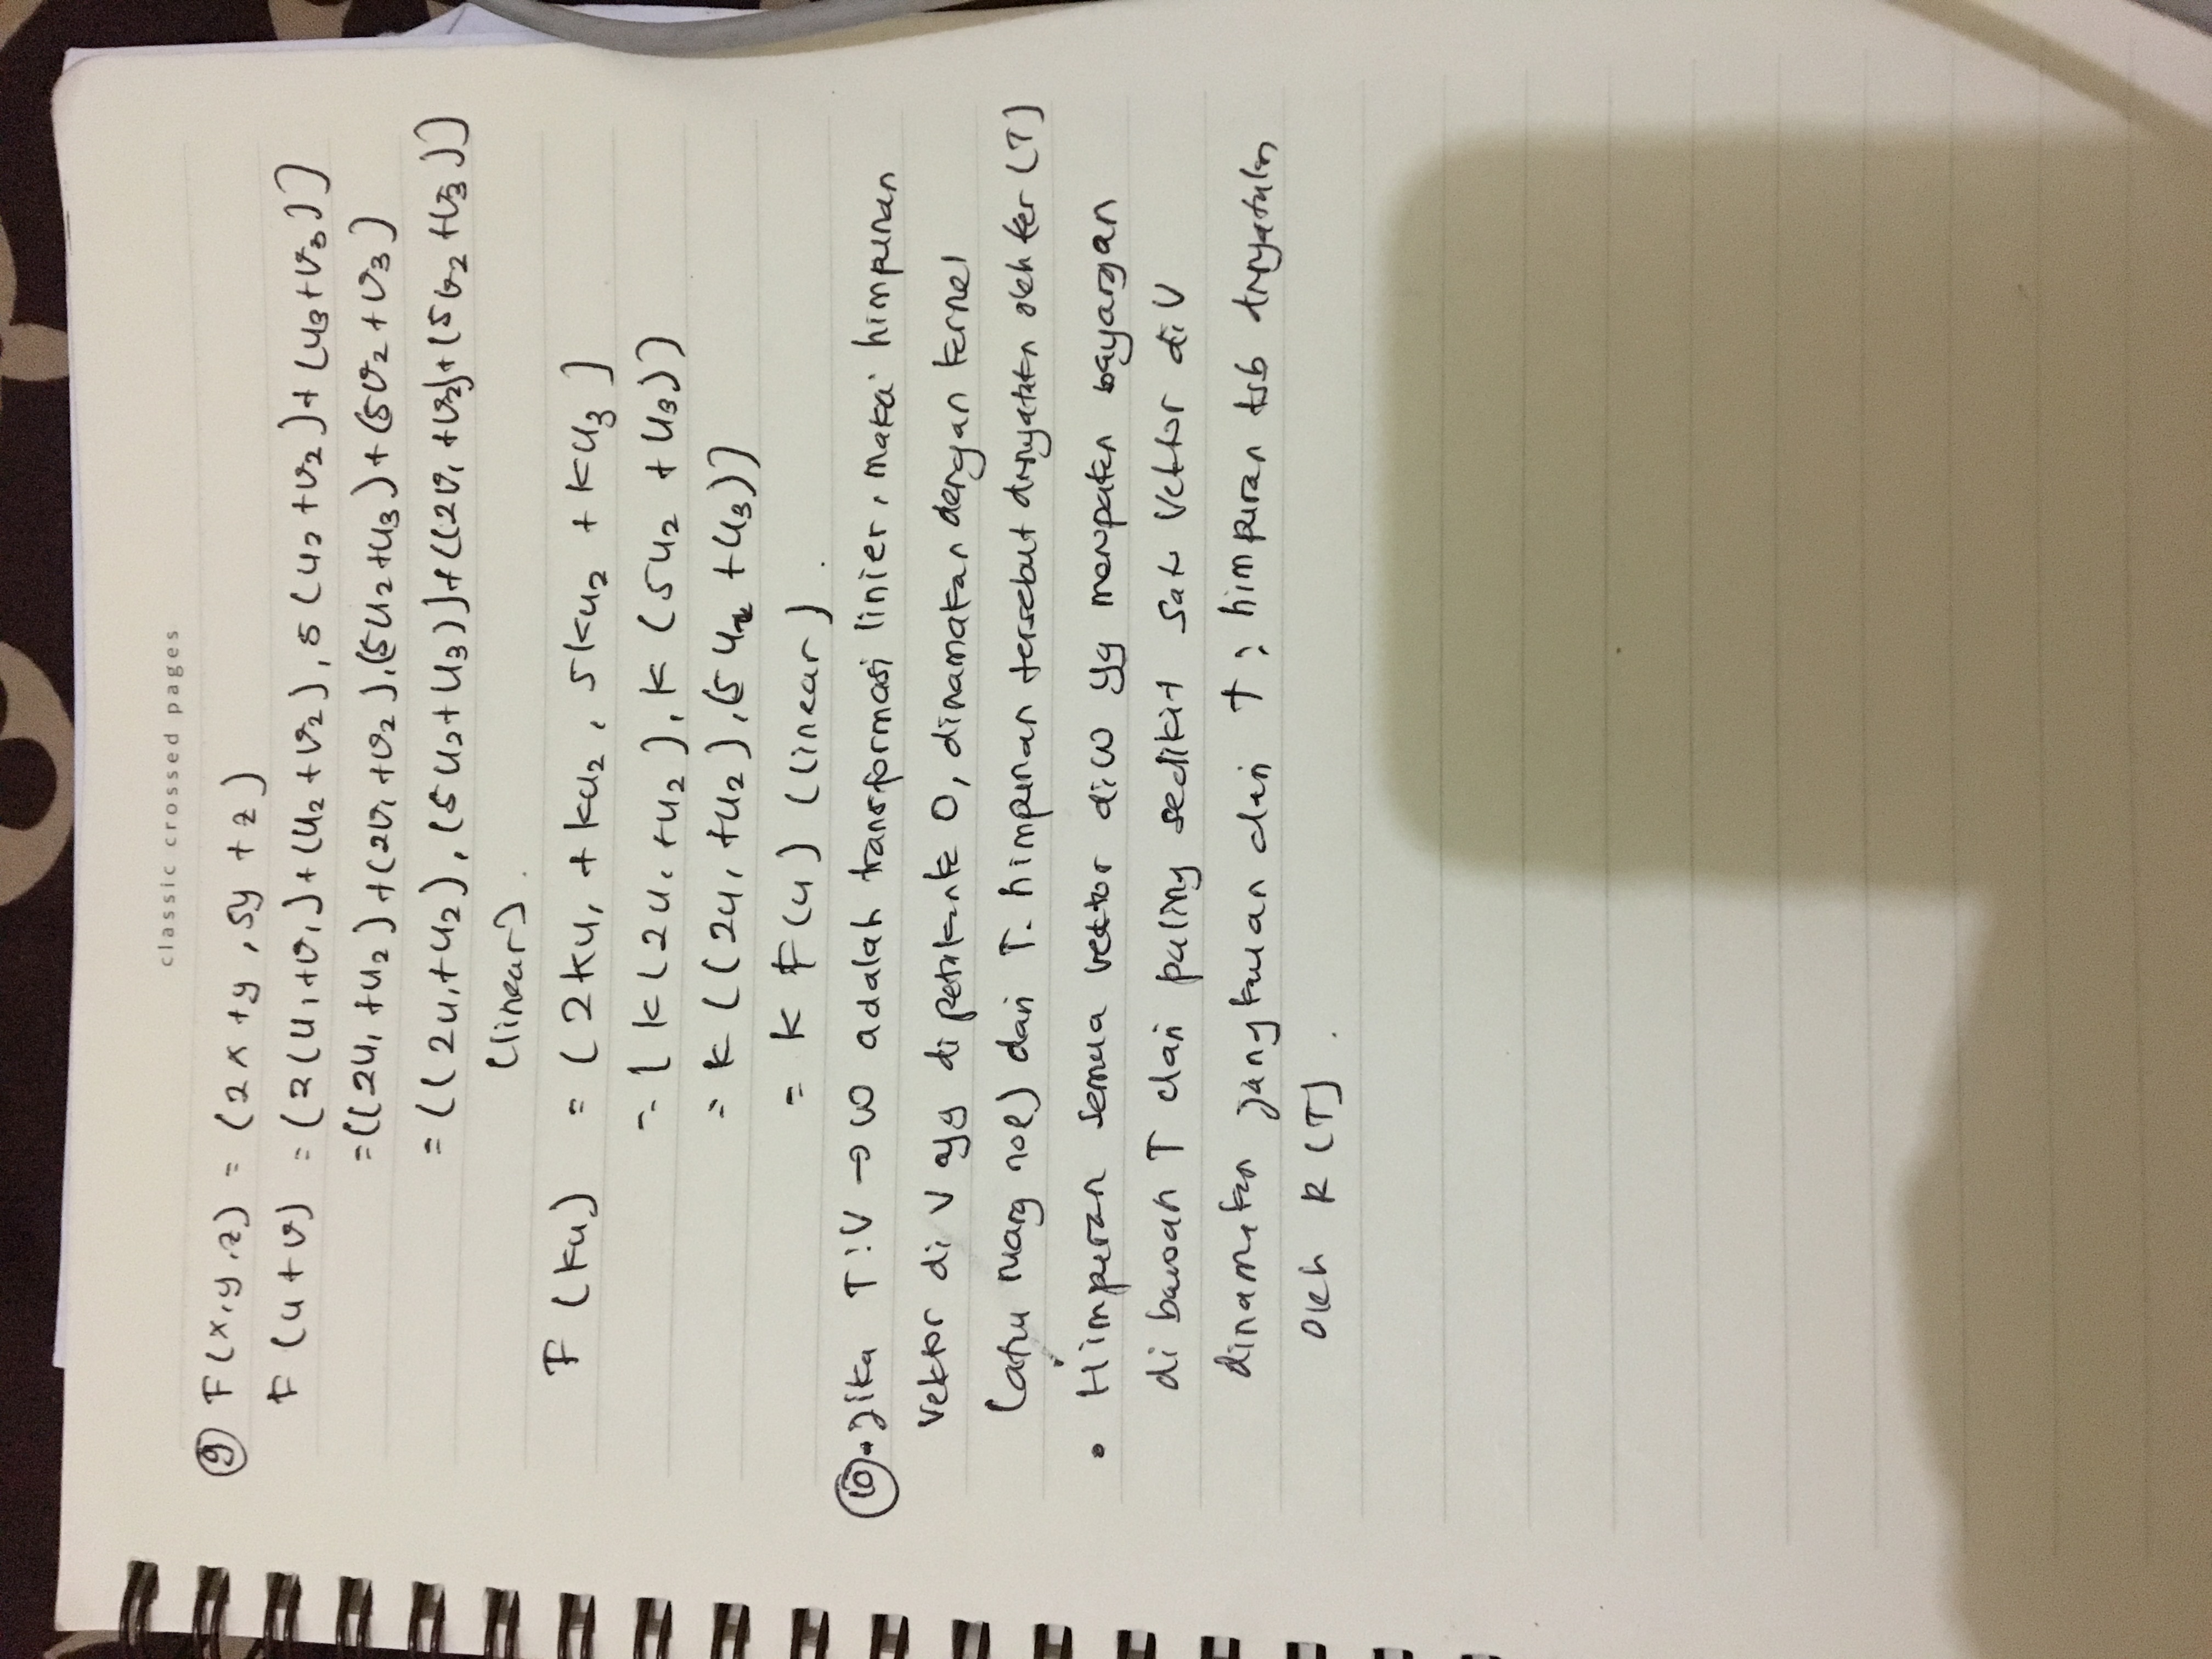 classic crossed pages
⑨ F(x,y,z) = (2x+y, 5y+z)
F(u+v) = (2(u₁+v₁)+(u₂+v₂), 5(u₂+v₂)+(u₃+v₃))
=((2u₁+u₂)+(2v₁+v₂),(5u₂+u₃)+(5v₂+v₃)
= ((2u₁+u₂), (5u₂+u₃))+((2v₁+v₂)+(5v₂+v₃))
(linear).
F(ku) = (2ku₁ + ku₂, 5ku₂ + ku₃)
= (k(2u₁+u₂), k(5u₂+u₃))
= k((2u₁+u₂),(5u₂+u₃))
= k F(u) (linear).
⑩ • Jika T:V → W adalah transformasi linier, maka himpunan
vektor di V yg dipetakan ke 0, dinamakan dengan kernel
(atau ruang nol) dari T. himpunan tersebut dinyatakan oleh ker (T)
• Himpunan semua vektor di W yg merupakan bayangan
di bawah T dari paling sedikit satu vektor di V
dinamakan jangkauan dari T; himpunan tsb dinyatakan
oleh R(T).